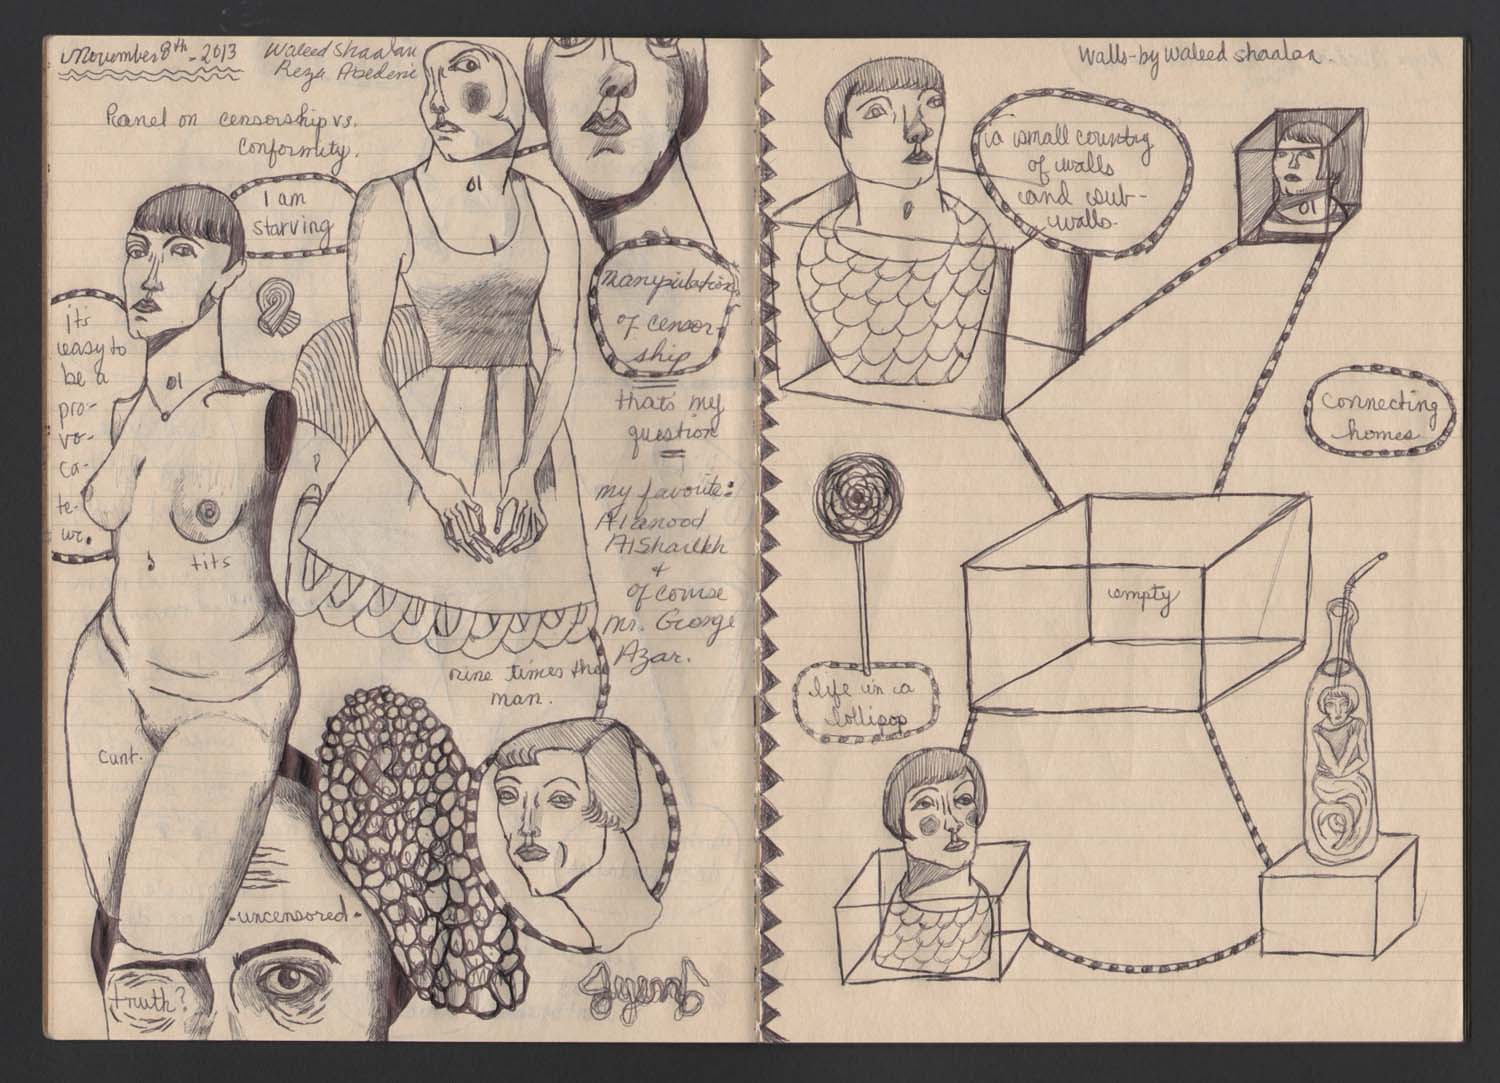 November 8th - 2013
Waleed Shaalan
Reza Abedeni
Panel on censorship vs.
conformity.
I am
starving
It's
easy to
be a
pro-
vo-
ca-
te-
ur.
Manipulations
of censor-
ship
that's my
question
my favorite:
Alanood
AlShaikh
+
of course
Mr. George
Azar.
tits
nine times the
man.
cunt.
-uncensored-
truth?
Walls - by Waleed Shaalan.
a small country
of walls
and sub-
walls.
connecting
homes
empty
life in a
lollipop